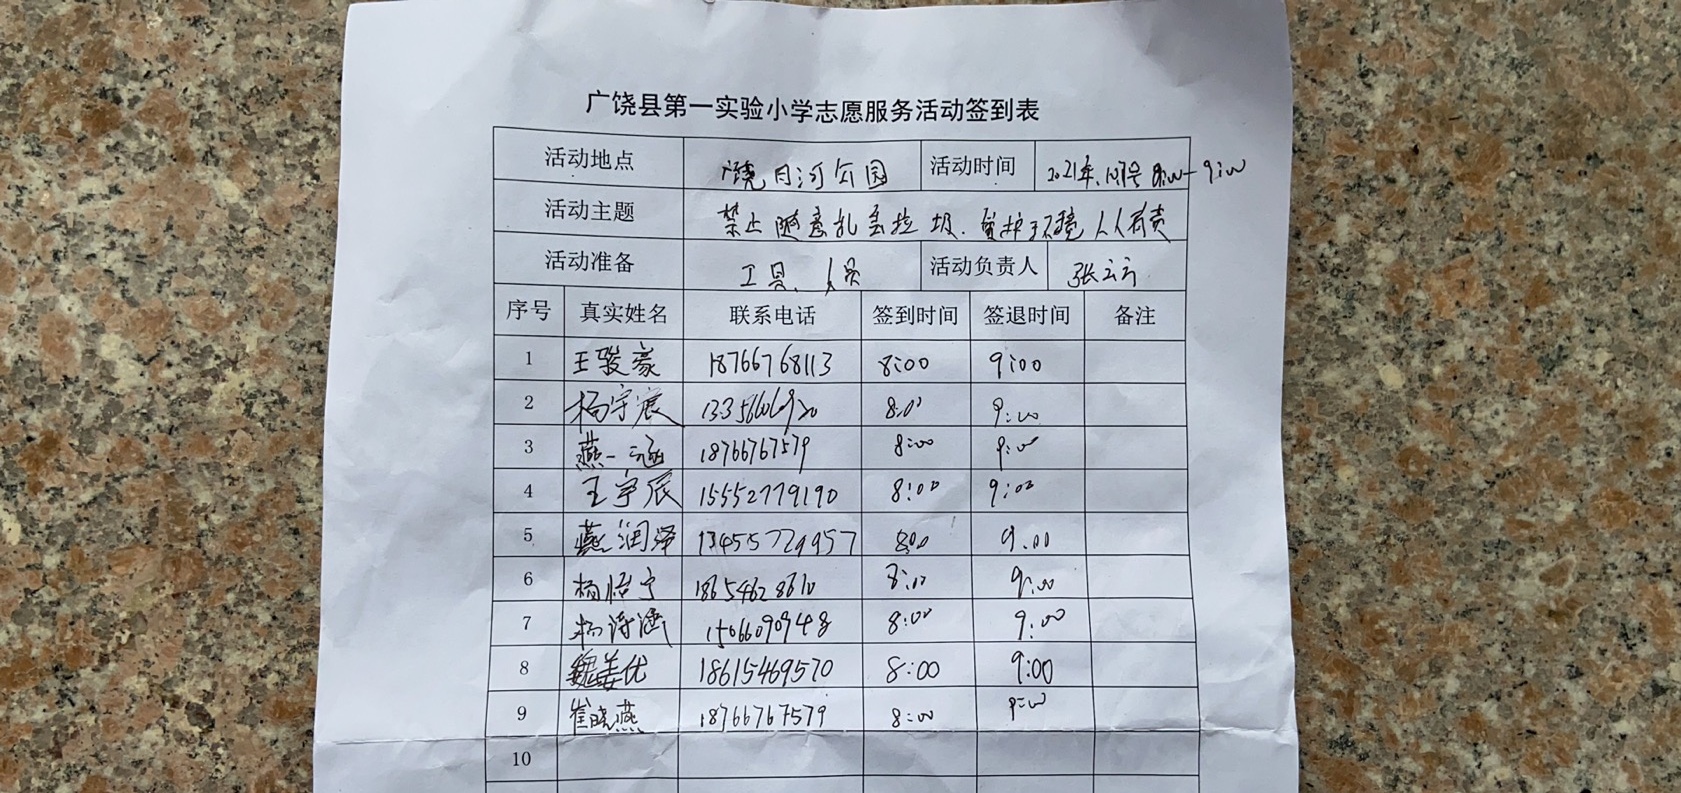 广饶县第一实验小学志愿服务活动签到表
活动地点 广饶月河公园 活动时间 2021年 8:00-9:00
活动主题 禁止随意乱丢垃圾. 爱护环境人人有责
活动准备 工具、人员 活动负责人
序号 真实姓名 联系电话 签到时间 签退时间 备注
1 王骏豪 18766768113 8:00 9:00
2 杨宇宸 8:00 9:00
3 燕一涵 18766767579 8:00 9:00
4 王宇辰 15552779190 8:00 9:00
5 燕润泽 13455729957 8:00 9:00
6 杨悟宁 18654628610 8:00 9:00
7 杨诗涵 15066090948 8:00 9:00
8 魏姜优 18615469570 8:00 9:00
9 崔晓燕 18766767579 8:00 9:00
10